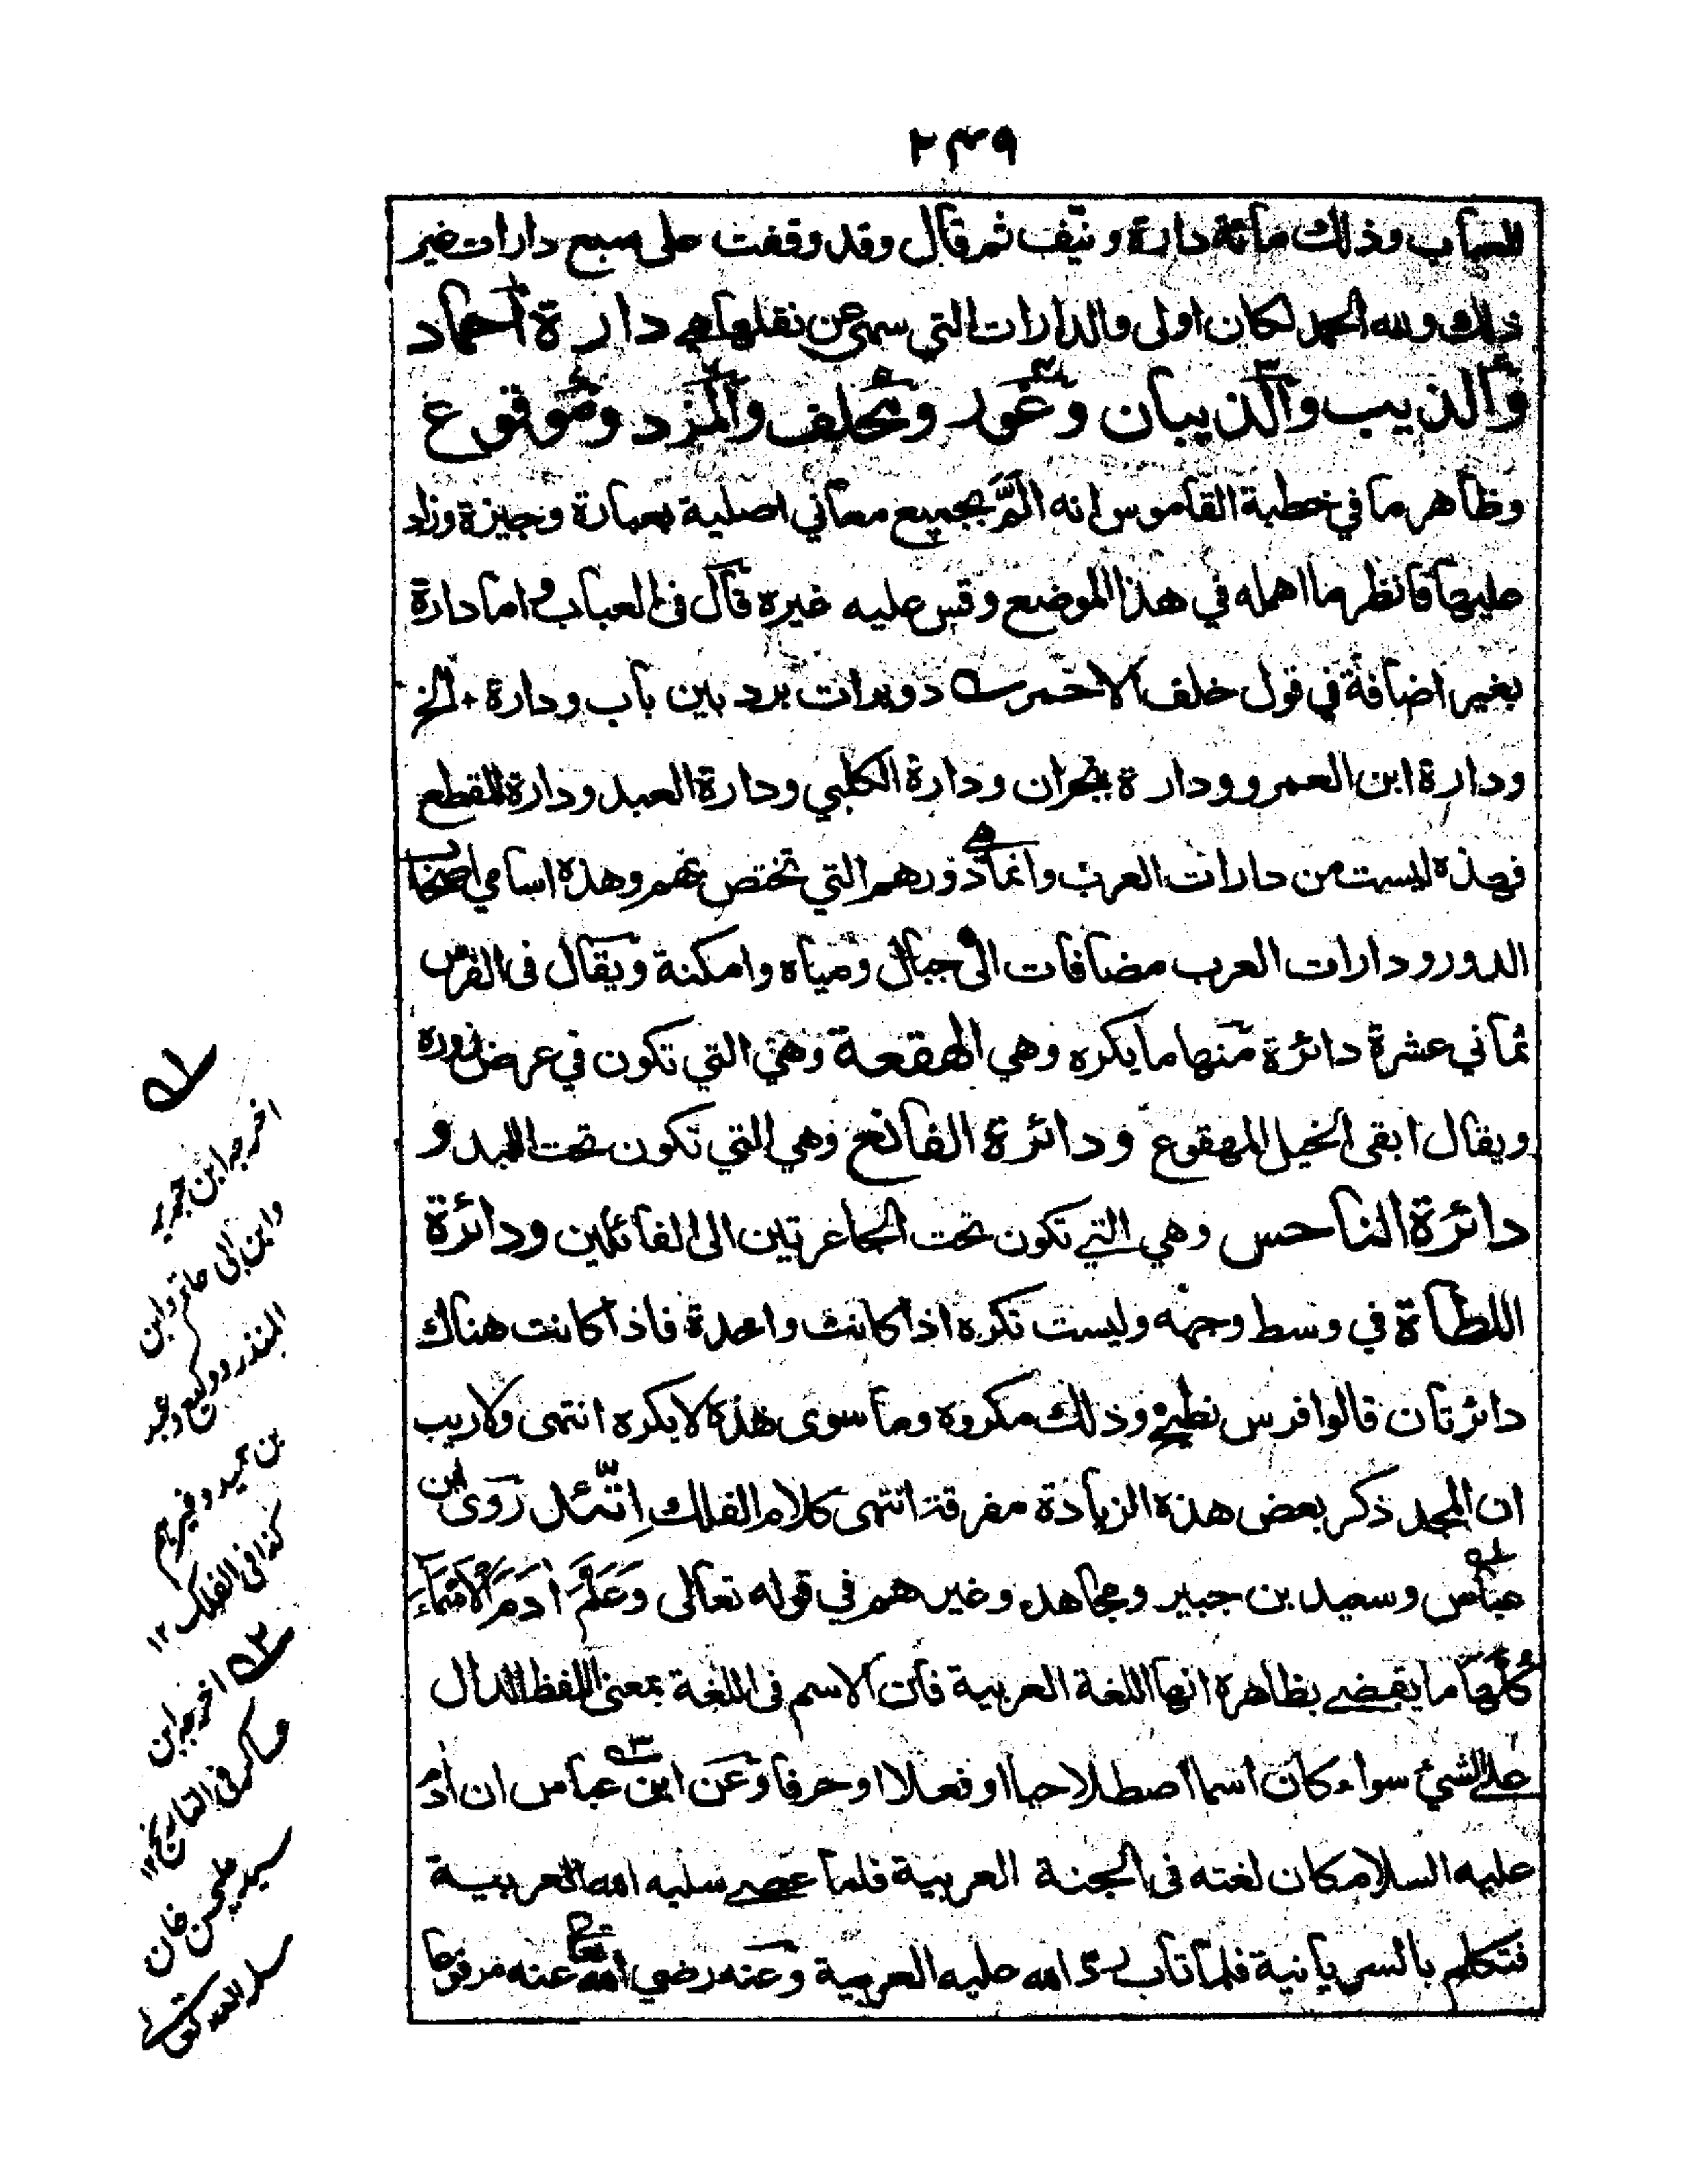 ٢٤٩
للعباب وذلك مائة دارة ونيّف ثم قال وقد وقفت على سبع دارات غير
ذلك ولله الحمد لكان اولى والدارات التي سهى عن نقلها هي دارة احماد
والذيب والذيبان وغور ومحلف والمزد وموقوع
وظاهر ما في خطبة القاموس انه المّ بجميع معاني اصلية بعبارة وجيزة وزاد
عليها فانظر ما اهمله في هذا الموضع وقس عليه غيره قال فى العباب واما دارة
بغير اضافة في قول خلف الاحمر دويرات برد بين باب ودارة الخ
ودارة ابن العمرو ودارة بنجران ودارة الكلبي ودارة العبد ودارة المقطع
فهذه ليست من دارات العرب وانما هي ذورهم التي تختص بهم وهذه اسامي اصحاب
الدور ودارات العرب مضافات الى جبال ومياه وامكنة ويقال فى الفرس
ثماني عشرة دائرة منها ما يكره وهي الهقعة وهي التي تكون في عرض زوره
ويقال ابقى الخيل المهقوع ودائرة الفالع وهي التي تكون تحت اللبد و
دائرة الناحس وهي التي تكون تحت الجاعرتين الى الفائلين ودائرة
اللطاة في وسط وجهه وليست تكره اذا كانت واحدة فاذا كانت هناك
دائرتان قالوا فرس نطيح وذلك مكروه وما سوى هذه لا يكره انتهى ولا ريب
ان المجد ذكر بعض هذه الزيادة مفرقة انتهى كلام الفلك اتّئد روى ابن
عباس وسعيد بن جبير ومجاهد وغيرهم في قوله تعالى وَعَلَّمَ اٰدَمَ الْاَسْمَآءَ
كُلَّهَا ما يقضى بظاهره انها اللغة العربية فان الاسم فى اللغة بمعنى اللفظ الدال
على الشئ سواء كان اسما اصطلاحيا او فعلا او حرفا وعن ابن عباس ان ادم
عليه السلام كان لغته فى الجنة العربية فلما عصى سلبه الله العربية
فتكلم بالسريانية فلما تاب رد الله عليه العربية وعنه رضي الله تعالى عنه مرفوعا
اخرجه ابن جرير
وابن ابى حاتم وابن
المنذر ووكيع وعبد
بن حميد وغيرهم
كذا فى الفلك ١٢
٣ اخرجه ابن
عساكر فى التاريخ ١٢
سيد على حسن خان
سلمه الله تعالى